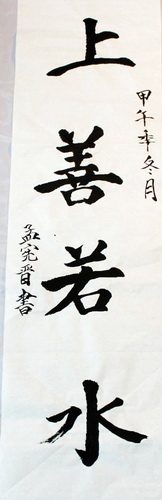 上善若水
甲午年冬月
孟宪晋书